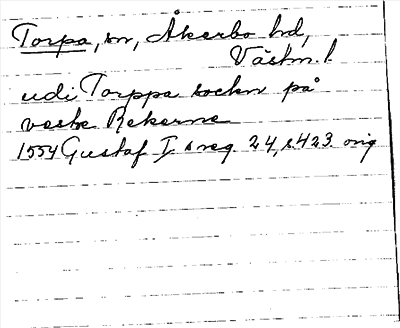 Torpa, sn, Åkerbo hd,
Västm. l.
udi Torppe sockn på
vestre Rekarne
1554 Gustaf I s reg. 24, s. 423. orig